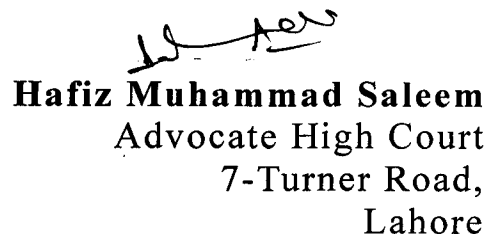 Hafiz Muhammad Saleem
Advocate High Court
7-Turner Road,
Lahore